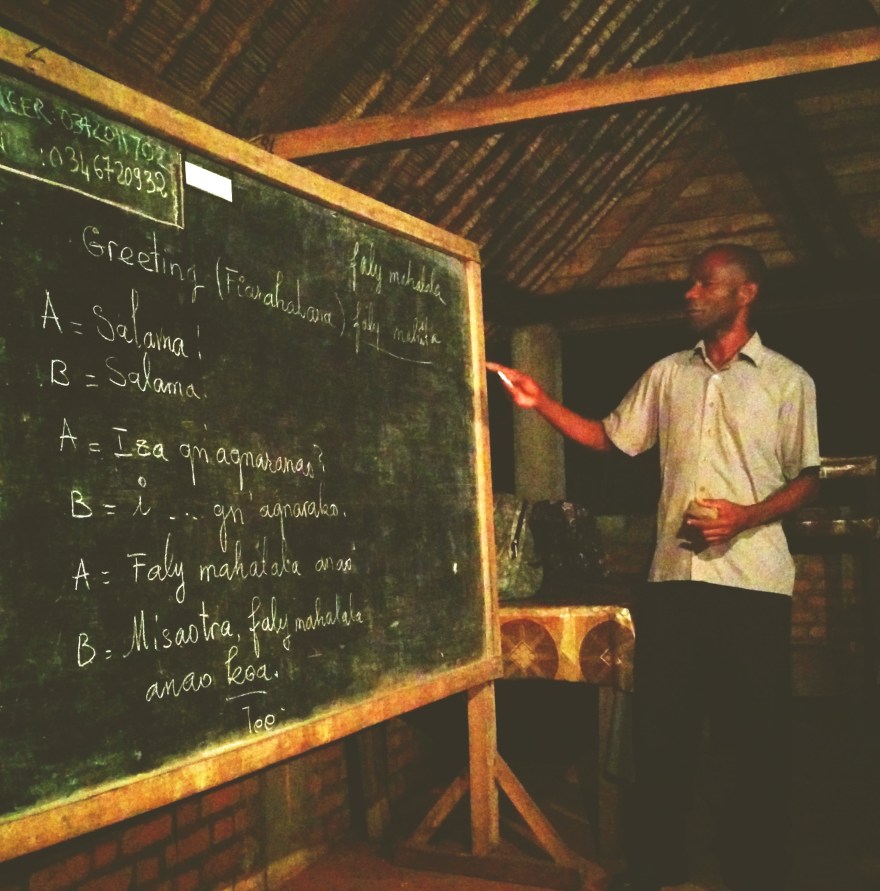 0346720932
Greeting (Fiarahabana)
faly mahalala
faly mahita
A = Salama!
B = Salama.
A = Iza gn'agnaranao?
B = i ... gn' agnarako.
A = Faly mahalala anao
B = Misaotra, faly mahalala
anao koa.
Tee